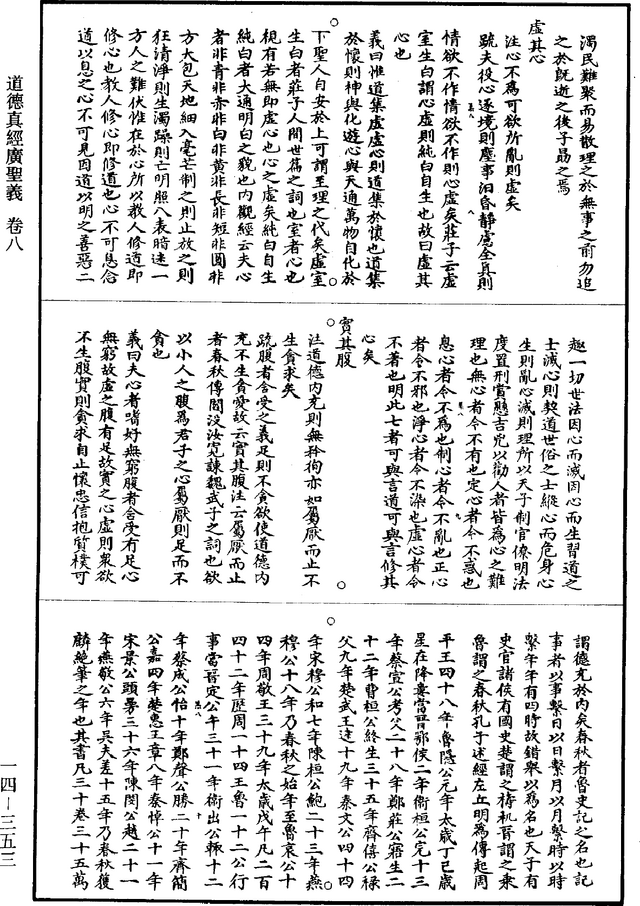 濁民難聚而易散理之於無事之前勿追
之於既逝之後子勗之焉
虛其心
注心不爲可欲所亂則虛矣
䟽夫役心逐境則塵事汩昏靜慮全真則
情欲不作情欲不作則心虛矣莊子云虛
室生白謂心虛則純白自生也故曰虛其
心也
義曰惟道集虛虛心則道集於懷也道集
於懷則神與化遊心與天通萬物自化於
下聖人自安於上可謂至理之代矣虛室
生白者莊子人間世篇之詞也室者心也
視有若無即虛心也心之虛矣純白自生
純白者大通明白之貌也內觀經云夫心
者非青非赤非白非黃非長非短非圓非
方大包天地細入毫芒制之則止放之則
狂清淨則生濁躁則亡明照八表暗迷一
方人之難伏惟在於心所以教人修道即
修心也教人修心即修道也心不可息念
道以息之心不可見因道以明之善惡二
趣一切世法因心而滅因心而生習道之
士滅心則契道世俗之士縱心而危身心
生則亂心滅則理所以天子制官僚明法
度置刑賞懸吉凶以勸人者皆爲心之難
理也無心者令不有也定心者令不惑也
息心者令不爲也制心者令不亂也正心
者令不邪也淨心者令不染也虛心者令
不著也明此七者可與言道可與言修其
心矣
實其腹
注道德內充則無矜徇亦如屬厭而止不
生貪求矣
䟽腹者含受之義足則不貪欲使道德內
充不生貪愛故云實其腹注云屬厭而止
者春秋傳閻沒汝寬諫魏武子之詞也欲
以小人之腹爲君子之心屬厭則足而不
貪也
義曰夫心者嗜好無窮腹者含受有足心
無窮故虛之腹有足故實之心虛則衆欲
不生腹實則貪求自止懷忠信抱質樸可
謂德充於內矣春秋者魯史記之名也記
事者以事繫日以日繫月以月繫時以時
繫年年有四時故錯舉以爲名也天子有
史官諸侯有國史楚謂之檮杌晉謂之乘
魯謂之春秋孔子述經左丘明爲傳起周
平王四十八年魯隱公元年太歲丁巳歲
星在降婁當晉鄂侯二年衛桓公完十三
年蔡宣公考父二十八年鄭莊公寤生二
十二年曹桓公終生三十五年齊僖公祿
父九年楚武王達十九年秦文公四十四
年宋穆公和七年陳桓公鮑二十三年燕
穆公十八年乃春秋之始年至魯哀公十
四年周敬王三十九年太歲戊午凡二百
四十二年歷周一十四王魯一十二公行
事當晉定公午三十一年衛出公輒十二
年蔡成公怡十年鄭聲公勝二十年齊簡
公嘉四年楚惠王章八年秦悼公十一年
宋景公頭曼三十六年陳閔公越二十一
年燕敬公六年吳夫差十五年乃春秋獲
麟絕筆之年也其書凡三十卷三十五萬
道德真經廣聖義 卷八
一四—三五三